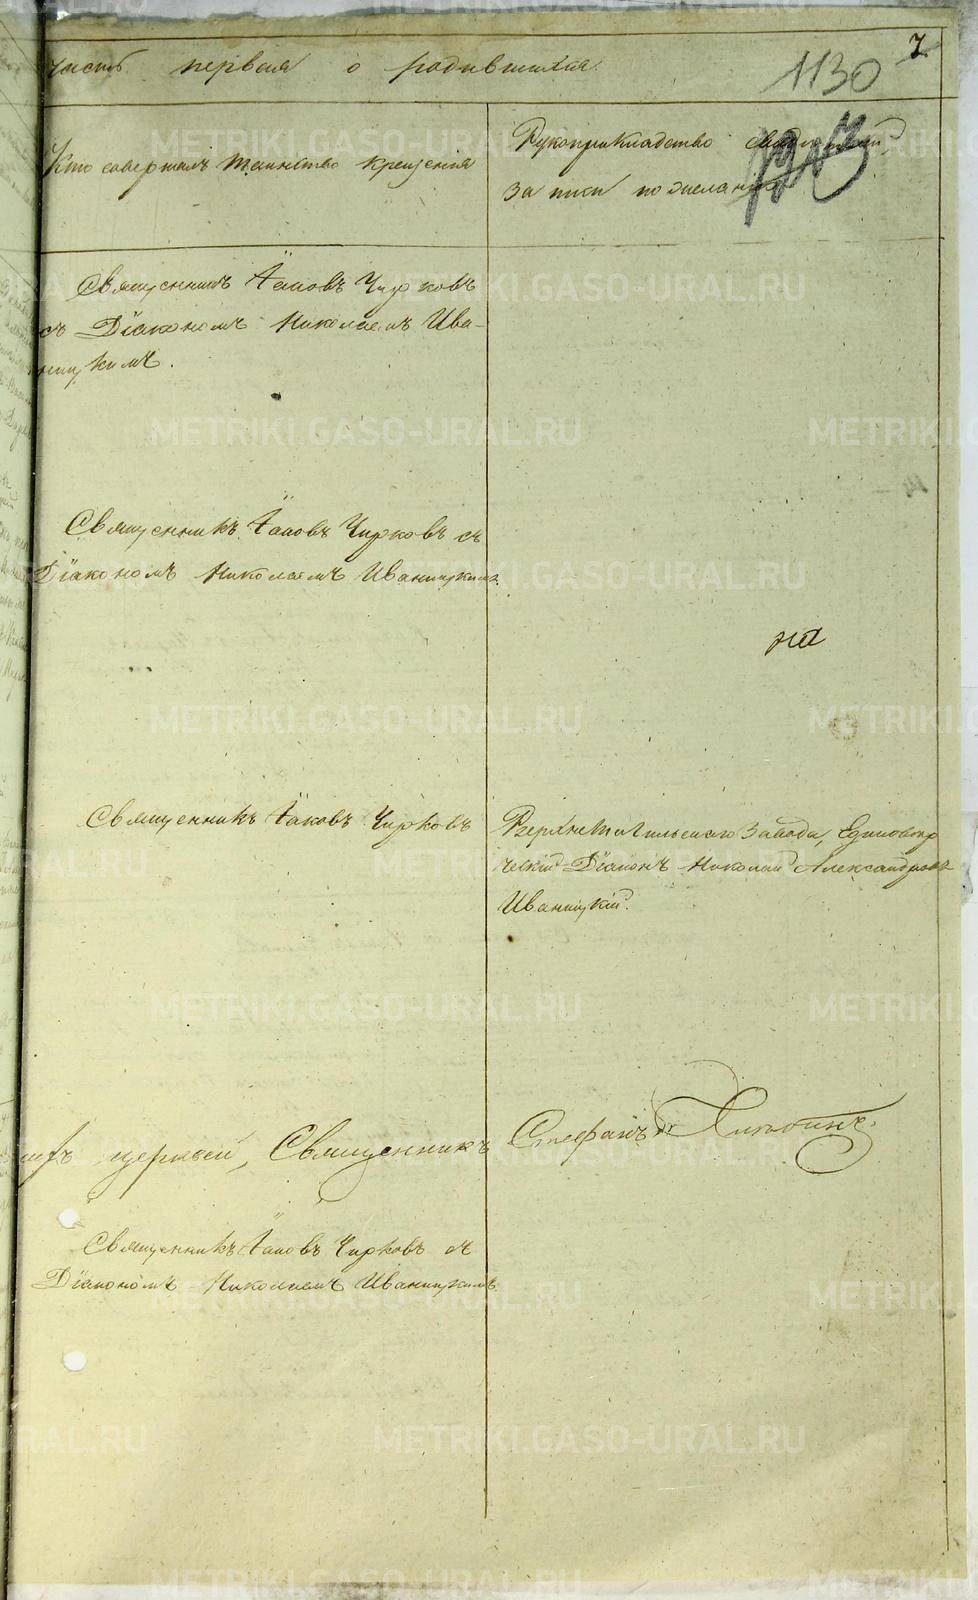 часть первая о родившихся.
7
1130
Кто совершалъ таинство крещенія
Рукоприкладство свидѣтелей
записи по желанію
Священникъ Іаковъ Чирковъ
съ Діакономъ Николаемъ Ива-
ницкимъ.
Священникъ Іаковъ Чирковъ съ
Діакономъ Николаемъ Иваницкимъ.
на
Священникъ Іаковъ Чирковъ
Верхнетагильскаго Завода, Единовѣр
ческій Діаконъ Николай Александровъ
Иваницкій.
церквей, Священникъ Стефанъ
Священникъ Іаковъ Чирковъ съ
Діакономъ Николаемъ Иваницкимъ.
METRIKI.GASO-URAL.RU